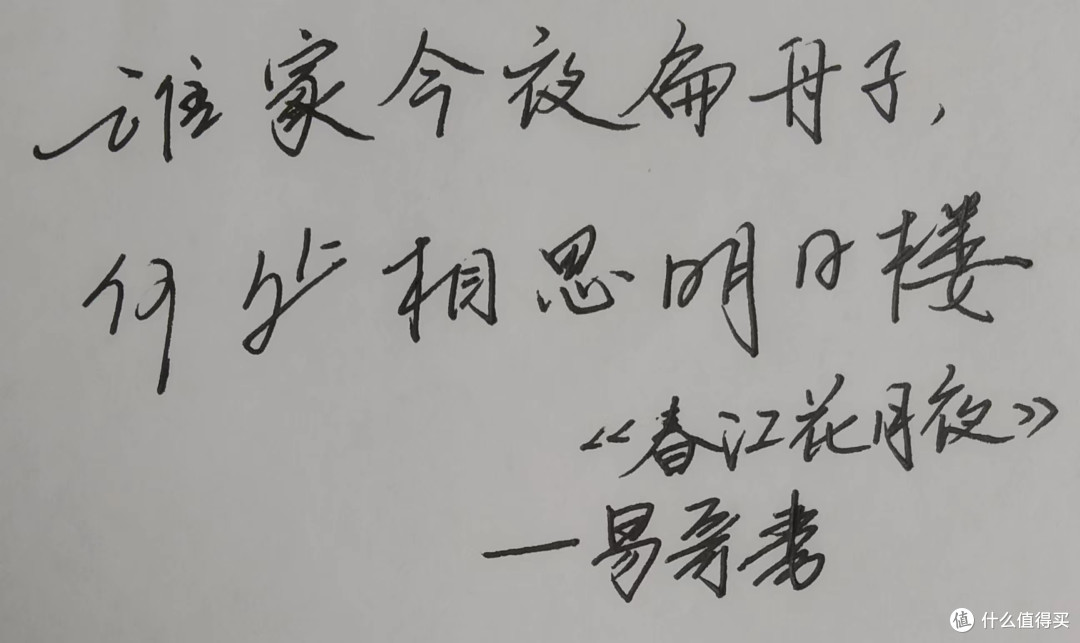 谁家今夜扁舟子，
何处相思明月楼
《春江花月夜》
—易哥书
值 什么值得买